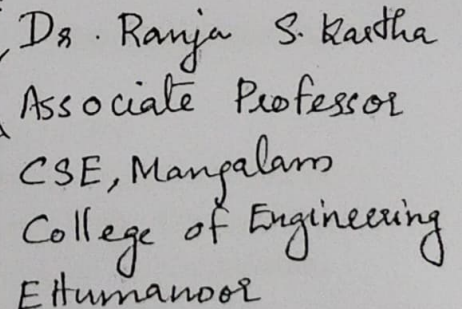 Dr. Ranju S. Kartha
Associate Professor
CSE, Mangalam
College of Engineering
Ettumanoor